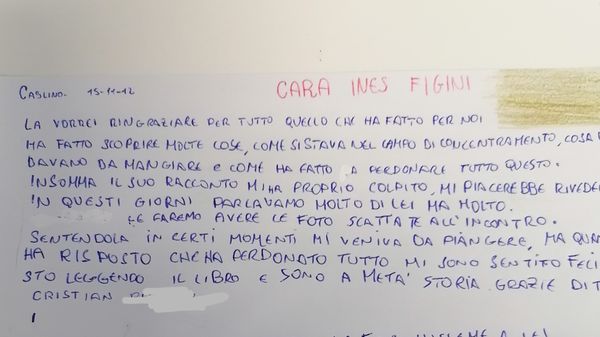 CASLINO. 15-11-12
CARA INES FIGINI
LA VORREI RINGRAZIARE PER TUTTO QUELLO CHE HA FATTO PER NOI
HA FATTO SCOPRIRE MOLTE COSE, COME SI STAVA NEL CAMPO DI CONCENTRAMENTO, COSA
DAVANO DA MANGIARE E COME HA FATTO A PERDONARE TUTTO QUESTO.
INSOMMA IL SUO RACCONTO MI HA PROPRIO COLPITO, MI PIACEREBBE RIVEDER
IN QUESTI GIORNI PARLAVAMO MOLTO DI LEI MA MOLTO.
LE FAREMO AVERE LE FOTO SCATTATE ALL'INCONTRO.
SENTENDOLA IN CERTI MOMENTI MI VENIVA DA PIANGERE, MA QUAN
HA RISPOSTO CHE HA PERDONATO TUTTO MI SONO SENTITO FELI
STO LEGGENDO IL LIBRO E SONO A METÀ STORIA GRAZIE DI T
CRISTIAN